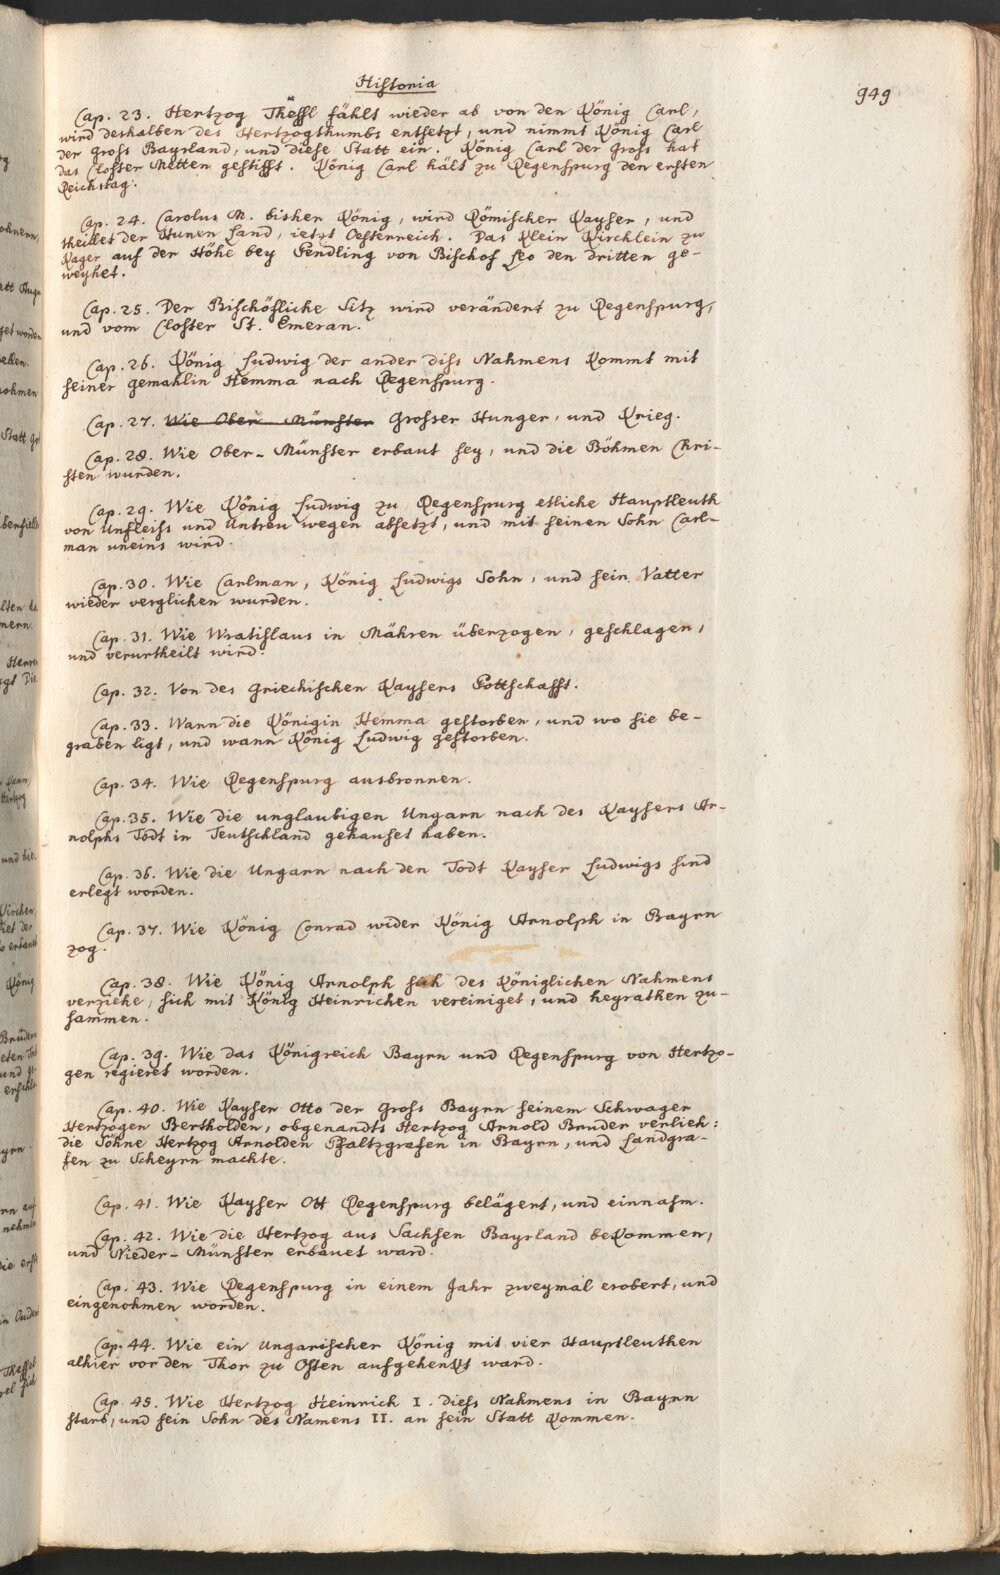 Historia
949
Cap. 23. Hertzog Theßl fählt wieder ab von den König Carl,
wird deshalben des Hertzogthumbs entsetzt, und nimmt König Carl
der Groß Bayrland, und diese Statt ein. König Carl der Groß hat
das Closter Metten gestifft. König Carl hält zu Regenspurg den ersten
Reichstag.
Cap. 24. Carolus M. bisher König, wird Römischer Kayser, und
theillet der Hunen Land, ietzt Oesterreich. Das Klein Kirchlein zu
Kager auf der Höhe bey Pendling von Bischof Leo den dritten ge-
weyhet.
Cap. 25. Der Bischöfliche Sitz wird verändert zu Regenspurg,
und vom Closter St. Emeran.
Cap. 26. König Ludwig der ander diß Nahmens Kommt mit
seiner gemahlin Hemma nach Regenspurg.
Cap. 27. Wie Ober Münster Grosser Hunger, und Krieg.
Cap. 28. Wie Ober-Münster erbaut sey, und die Böhmen Chri-
sten wurden.
Cap. 29. Wie König Ludwig zu Regenspurg etliche Hauptleuth
von Unfleiß und Untreu wegen absetzt, und mit seinen Sohn Carl-
man uneins wird.
Cap. 30. Wie Carlman, König Ludwigs Sohn, und sein Vatter
wieder verglichen wurden.
Cap. 31. Wie Wratislaus in Mähren überzogen, geschlagen,
und verurtheilt wird.
Cap. 32. Von des Griechischen Kaysers Pottschafft.
Cap. 33. Wann die Königin Hemma gestorben, und wo sie be-
graben ligt, und wann König Ludwig gestorben.
Cap. 34. Wie Regenspurg ausbronnen.
Cap. 35. Wie die unglaubigen Ungarn nach des Kaysers Ar-
nolphs Todt in Teutschland gehauset haben.
Cap. 36. Wie die Ungarn nach den Todt Kayser Ludwigs sind
erlegt worden.
Cap. 37. Wie König Conrad wider König Arnolph in Bayrn
zog.
Cap. 38. Wie König Arnolph sich des Königlichen Nahmens
verziehe, sich mit König Heinrichen vereiniget, und heyrathen zu-
sammen.
Cap. 39. Wie das Königreich Bayrn und Regenspurg von Hertzo-
gen regieret worden.
Cap. 40. Wie Kayser Otto der Groß Bayrn seinem Schwager
Hertzogen Bertholden, obgenandts Hertzog Arnold Bruder verlieh:
die Söhne Hertzog Arnolden Pfaltzgrafen in Bayrn, und Landgra-
fen zu Scheyrn machte.
Cap. 41. Wie Kayser Ott Regenspurg belägert, und einnahm.
Cap. 42. Wie die Hertzog aus Sachsen Bayrland bekommen,
und Nieder-Münster erbauet ward.
Cap. 43. Wie Regenspurg in einem Jahr zweymal erobert, und
eingenohmen worden.
Cap. 44. Wie ein Ungarischer König mit vier Hauptleuthen
alhier vor den Thor zu Osten aufgehenkt ward.
Cap. 45. Wie Hertzog Heinrich I. dieß Nahmens in Bayrn
starb, und sein Sohn des Namens II. an sein Statt Kommen.